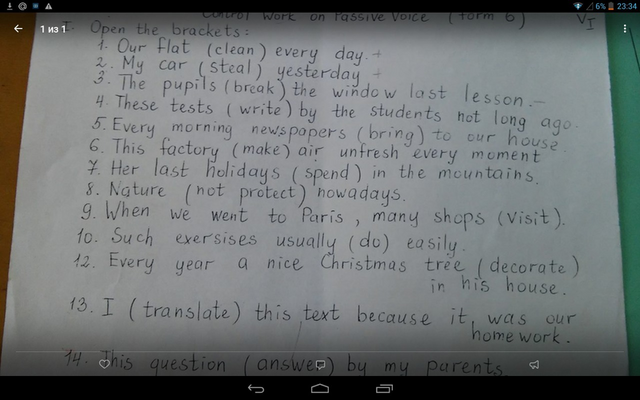 6% 23:34
1 из 1
Control Work on Passive Voice (form 6) VI
I. Open the brackets:
1. Our flat (clean) every day. +
2. My car (steal) yesterday +
3. The pupils (break) the window last lesson. –
4. These tests (write) by the students not long ago.
5. Every morning newspapers (bring) to our house.
6. This factory (make) air unfresh every moment
7. Her last holidays (spend) in the mountains.
8. Nature (not protect) nowadays.
9. When we went to Paris, many shops (visit).
10. Such exersises usually (do) easily.
12. Every year a nice Christmas tree (decorate)
in his house.
13. I (translate) this text because it was our
homework.
14. This question (answer) by my parents.